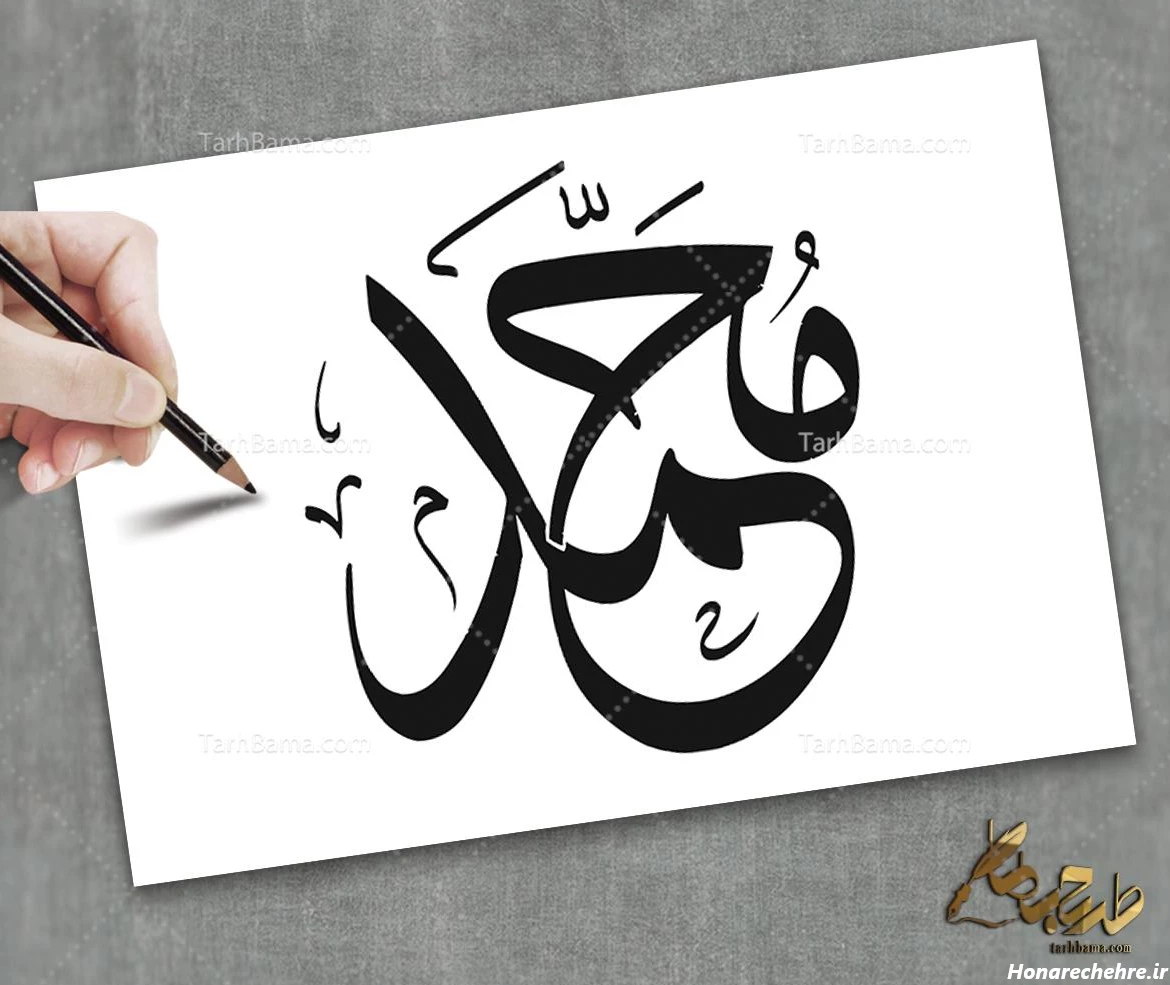 TarhBama.com TarhBama.com
مُحَمَّد
TarhBama.com TarhBama.com
TarhBama.com TarhBama.com
طرح باما
tarhbama.com
Honarechehre.ir